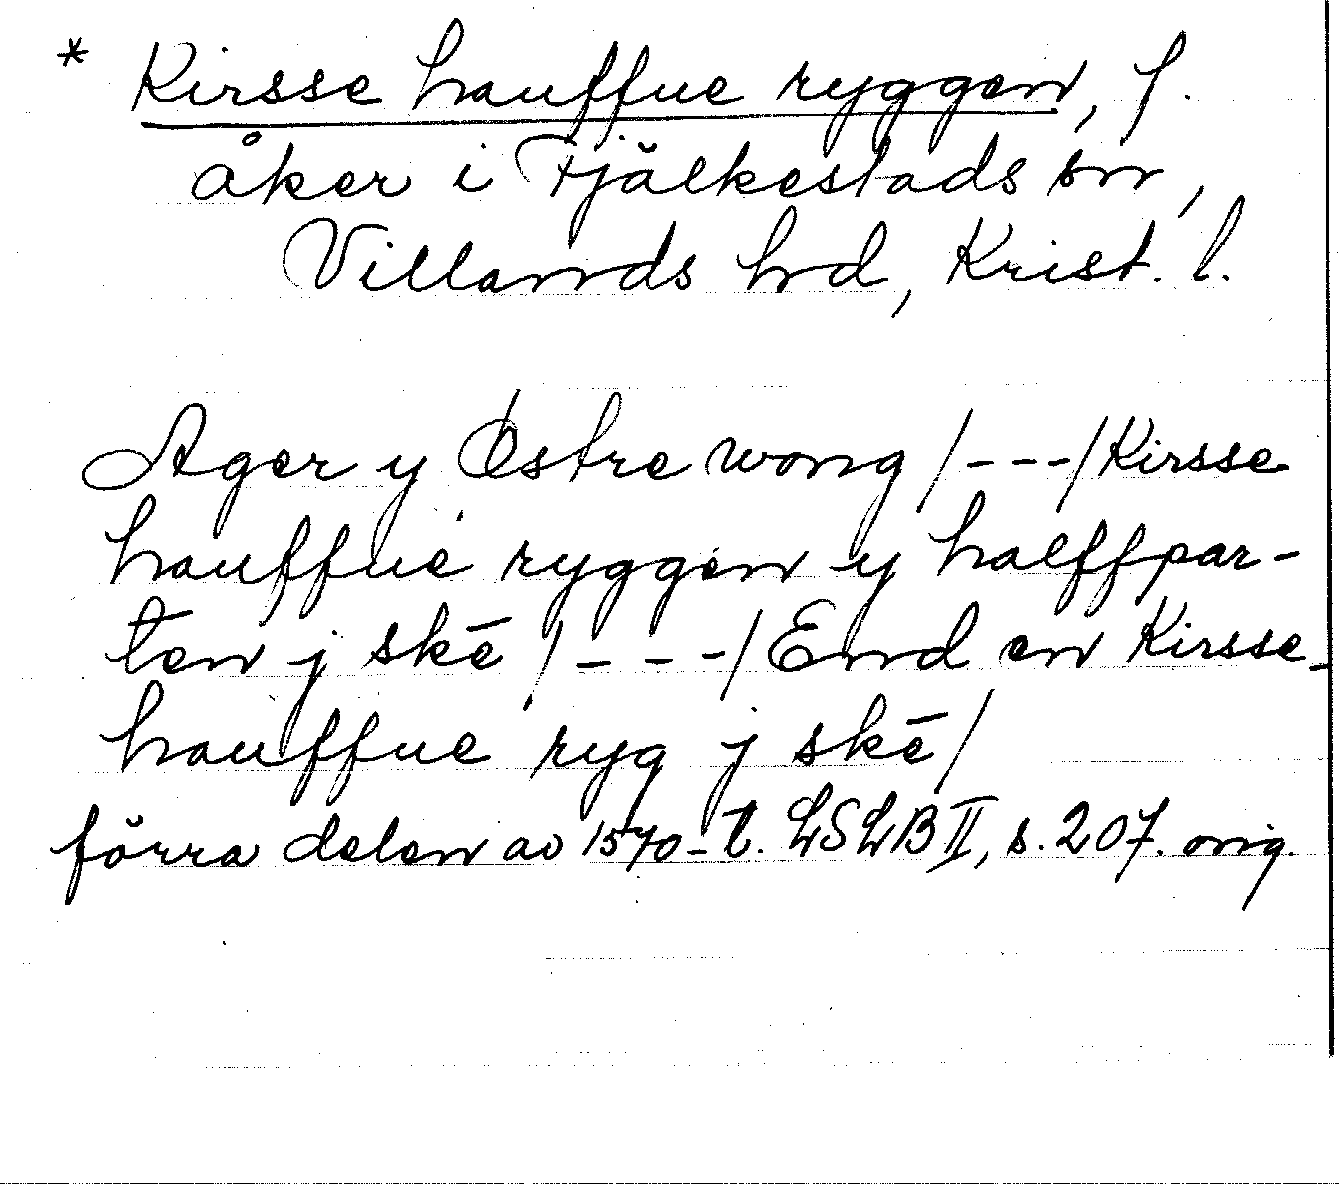 * Kirsse hauffue ryggen, f.
åker i Fjälkestads sn,
Villands hd, Krist. l.
Ager y Østre wong /---/ Kirsse
hauffue ryggen y halffpar-
ten j skē /---/ End en Kirsse-
hauffue ryg j skē/
förra delen av 1570-t. LSLB II, s. 207. orig.